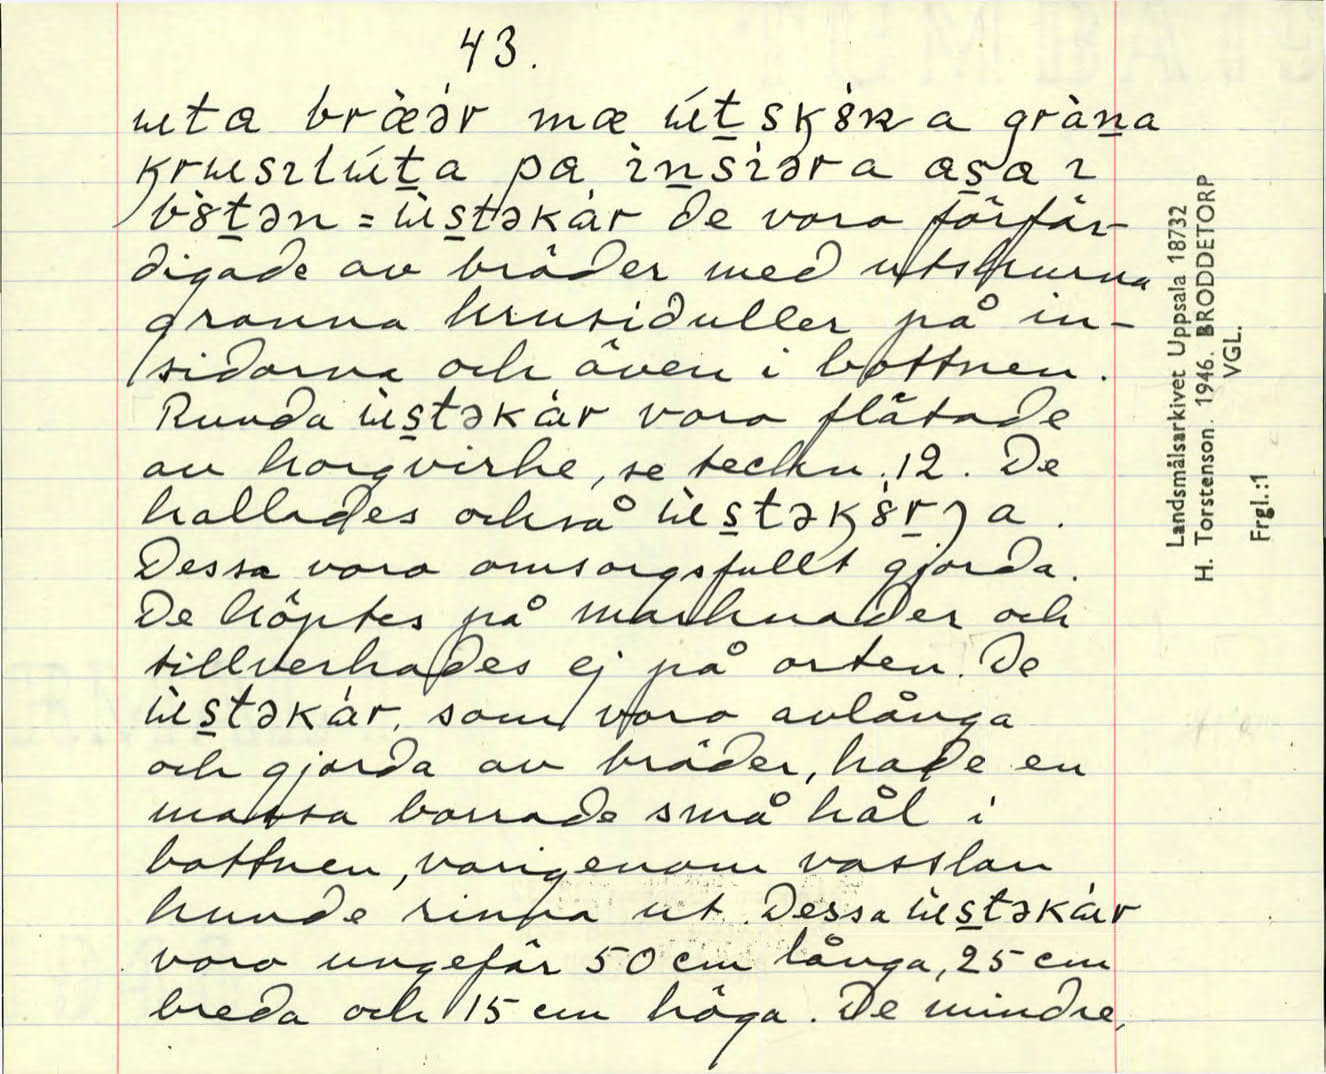 43.
uta bræ̀ər mæ útskŏ̀ra gràna
krusɩlúta pa ìnsiəra asa ɩ
bŏ̀tən = ùstəkár De voro förfär-
digade av bräder med utskurna
granna krusiduller på in-
sidorna och även i bottnen.
Runda ùstəkár voro flätade
av korgvirke, se teckn. 12. De
kallades också ùstəkŏ̀rja.
Dessa voro omsorgsfullt gjorda.
De köptes på marknader och
tillverkades ej på orten. De
ùstəkár, som voro avlånga
och gjorda av bräder, hade en
massa borrade små hål i
bottnen, varigenom vasslan
kunde rinna ut. Dessa ùstəkár
voro ungefär 50 cm långa, 25 cm
breda och 15 cm höga. De mindre,
Landsmålsarkivet Uppsala 18732
H. Torstenson. 1946. BRODDETORP
VGL.
Frgl.:1